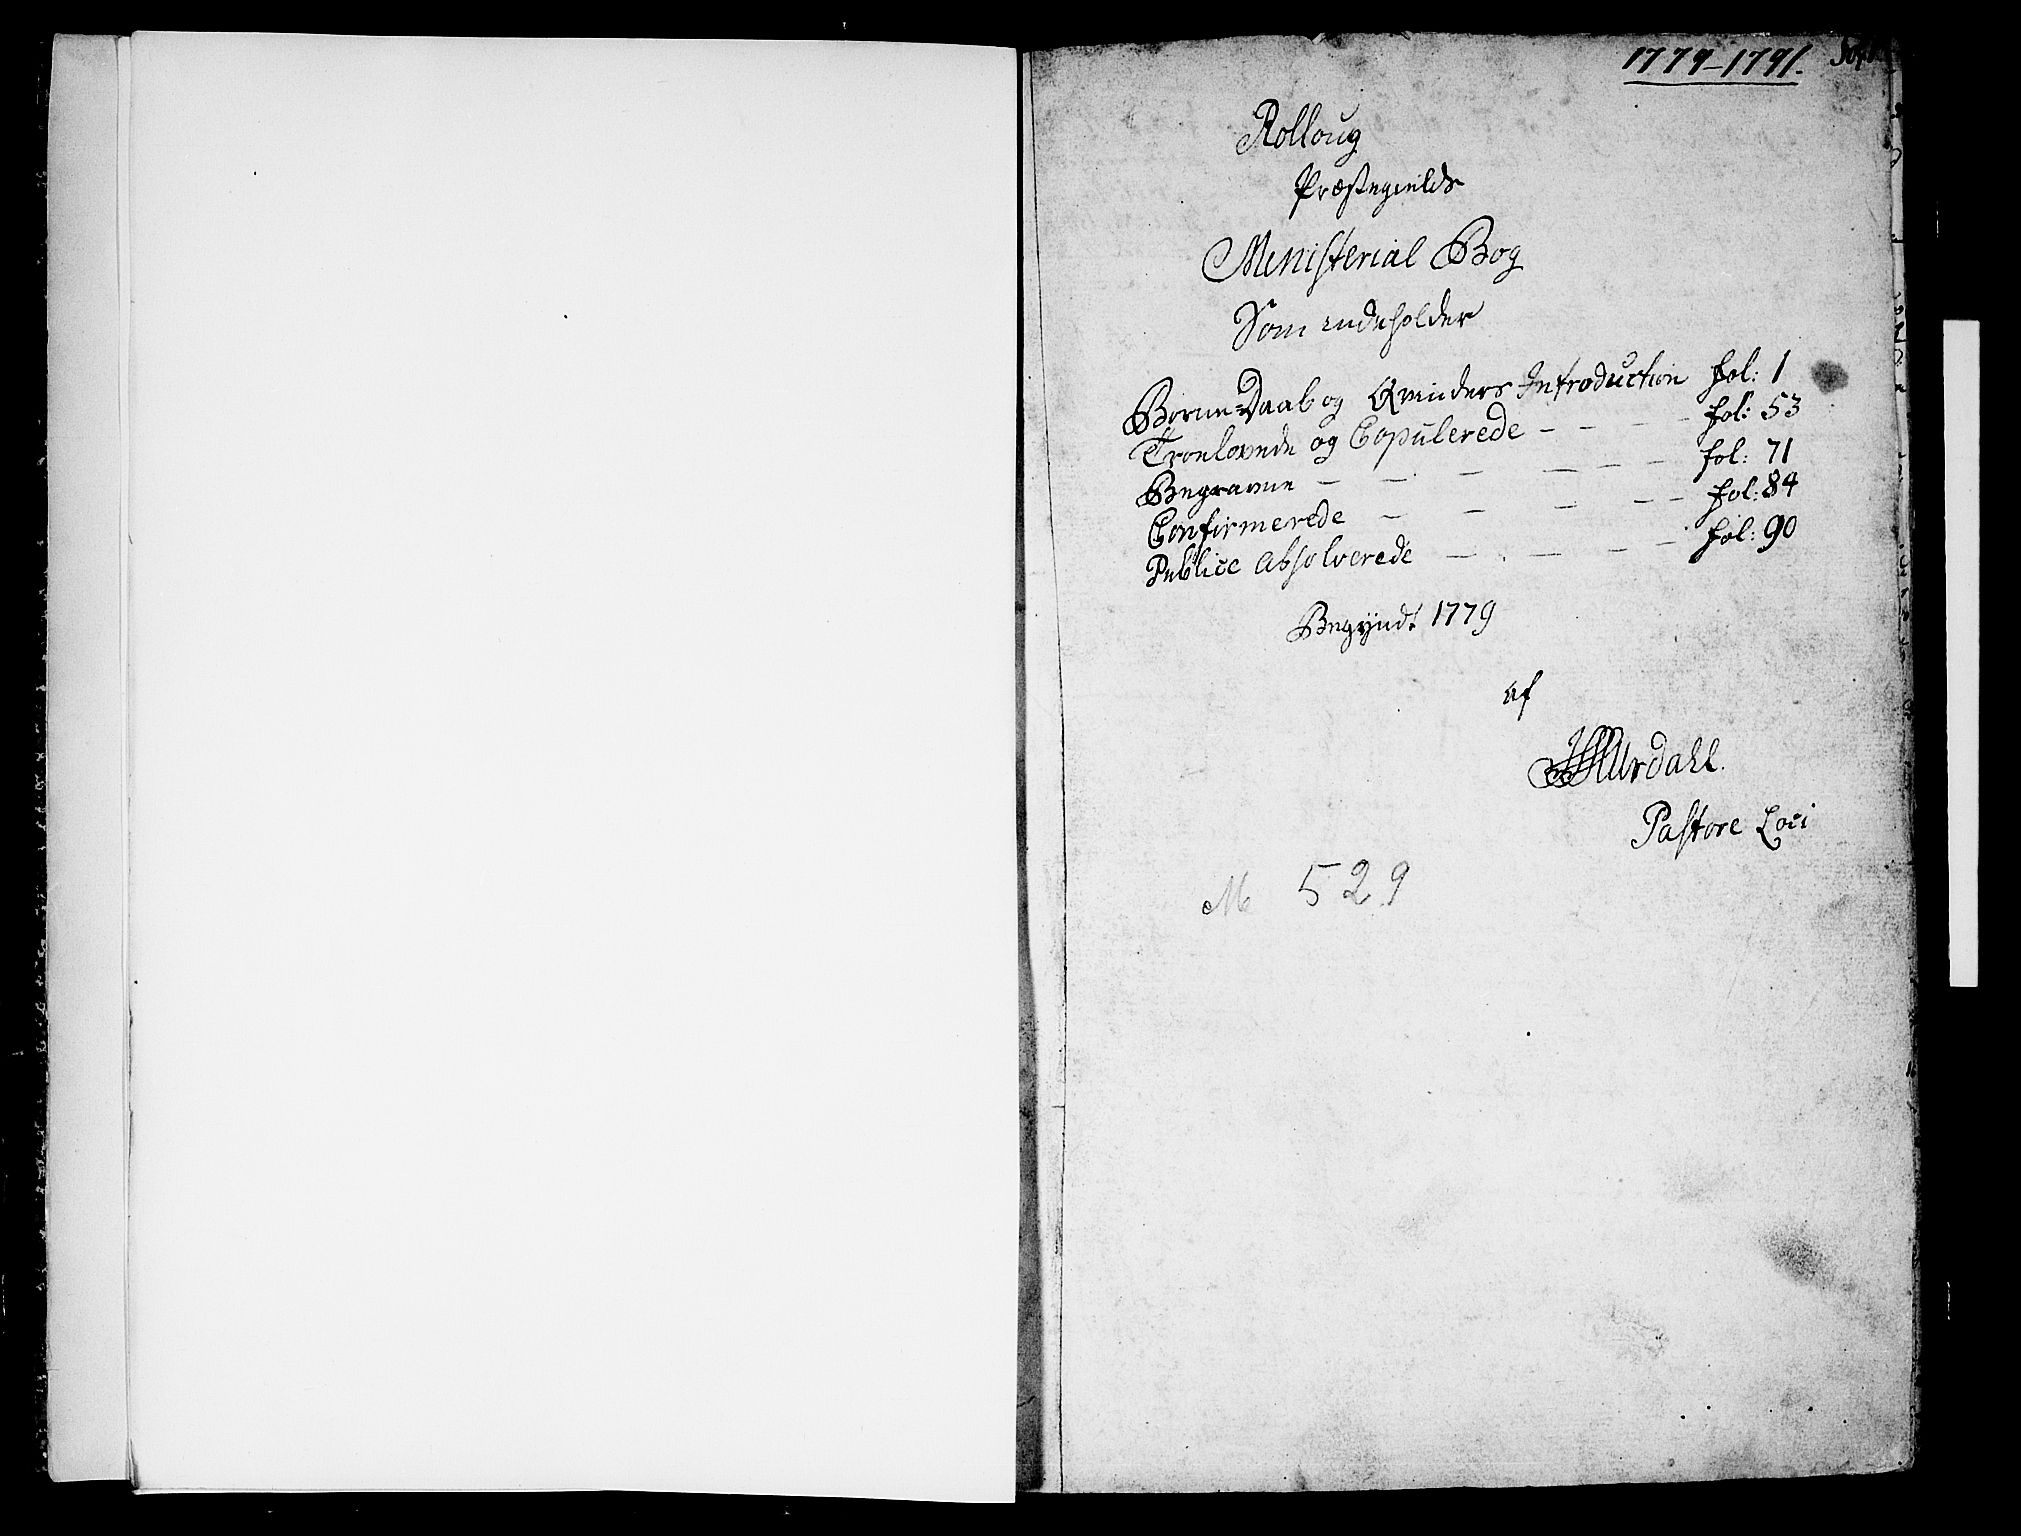 1779-1791.
Rolloug
Præstegields
Ministerial Bog
Som indeholder
Børne-Daab og Qvinders Introduction fol: 1
Troelovede og Copulerede - - - - fol: 53
Begravne - - - - - - fol: 71
Confirmerede - - - - - fol: 84
Publice Absolverede - - - - fol: 90
Begyndt 1779
af
Urdahl.
Pastore Loci
M 529